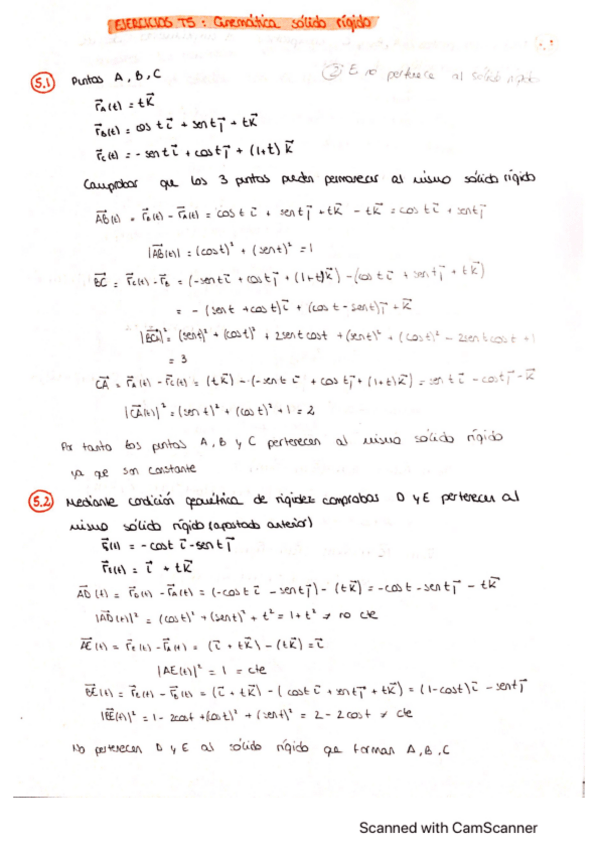 EJERCICIOS T5: Cinemática sólido rígido
5.1 Puntos A, B, C
② E no pertenece al sólido rígido
r⃗A(t) = tk⃗
r⃗B(t) = cos t i⃗ + sen t j⃗ + tk⃗
r⃗C(t) = - sen t i⃗ + cos t j⃗ + (1+t) k⃗
Comprobar que los 3 puntos pueden permanecer al mismo sólido rígido
AB⃗(t) = r⃗B(t) - r⃗A(t) = cos t i⃗ + sen t j⃗ + tk⃗ - tk⃗ = cos t i⃗ + sen t j⃗
|AB⃗(t)| = (cos t)² + (sen t)² = 1
BC⃗ = r⃗C(t) - r⃗B = (-sen t i⃗ + cos t j⃗ + (1+t)k⃗) - (cos t i⃗ + sen t j⃗ + tk⃗)
= - (sen t + cos t) i⃗ + (cos t - sen t) j⃗ + k⃗
|BC⃗|² = (sen t)² + (cos t)² + 2 sen t cos t + (sen t)² + (cos t)² - 2 sen t cos t + 1
= 3
CA⃗ = r⃗A(t) - r⃗C(t) = (tk⃗) - (-sen t i⃗ + cos t j⃗ + (1+t)k⃗) = sen t i⃗ - cos t j⃗ - k⃗
|CA⃗(t)|² = (sen t)² + (cos t)² + 1 = 2
Por tanto los puntos A, B y C pertenecen al mismo sólido rígido
ya que son constante
5.2 Mediante condición geométrica de rigidez comprobas D y E pertenecen al
mismo sólido rígido (apartado anterior)
r⃗D(t) = - cos t i⃗ - sen t j⃗
r⃗E(t) = i⃗ + tk⃗
AD⃗(t) = r⃗D(t) - r⃗A(t) = (-cos t i⃗ - sen t j⃗) - (tk⃗) = -cos t - sen t j⃗ - tk⃗
|AD(t)|² = (cos t)² + (sen t)² + t² = 1 + t² ≠ no cte
AE⃗(t) = r⃗E(t) - r⃗A(t) = (i⃗ + tk⃗) - (tk⃗) = i⃗
|AE(t)|² = 1 = cte
BE⃗(t) = r⃗E(t) - r⃗B(t) = (i⃗ + tk⃗) - (cos t i⃗ + sen t j⃗ + tk⃗) = (1-cos t) i⃗ - sen t j⃗
|BE⃗(t)|² = 1 - 2cos t + (cos t)² + (sen t)² = 2 - 2 cos t ≠ cte
No pertenecen D y E al sólido rígido que forman A, B, C
Scanned with CamScanner